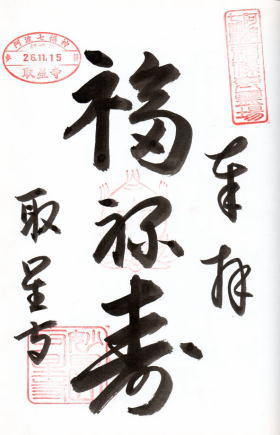 奉拝
福禄寿
取星寺
阿波七福神
26.11.15
取星寺